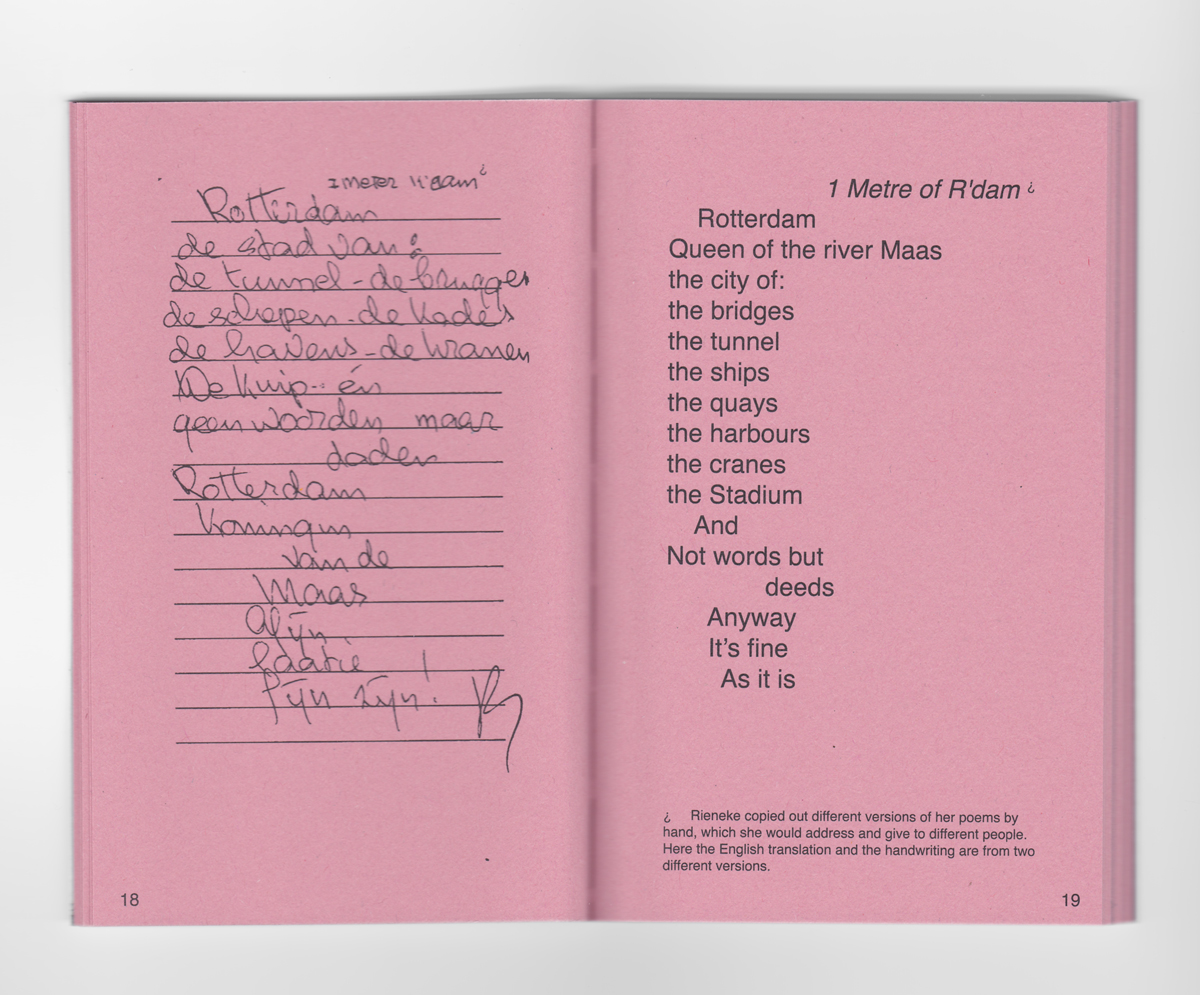 1 meter R'dam ¿
Rotterdam
de stad van:
de tunnel - de bruggen
de schepen - de kades
de havens - de kranen
De Kuip - én
geen woorden maar
daden
Rotterdam
Koningin
van de
Maas
Afijn
Laatie !
fijn zijn!
18
1 Metre of R'dam ¿
Rotterdam
Queen of the river Maas
the city of:
the bridges
the tunnel
the ships
the quays
the harbours
the cranes
the Stadium
And
Not words but
deeds
Anyway
It's fine
As it is
¿ Rieneke copied out different versions of her poems by
hand, which she would address and give to different people.
Here the English translation and the handwriting are from two
different versions.
19